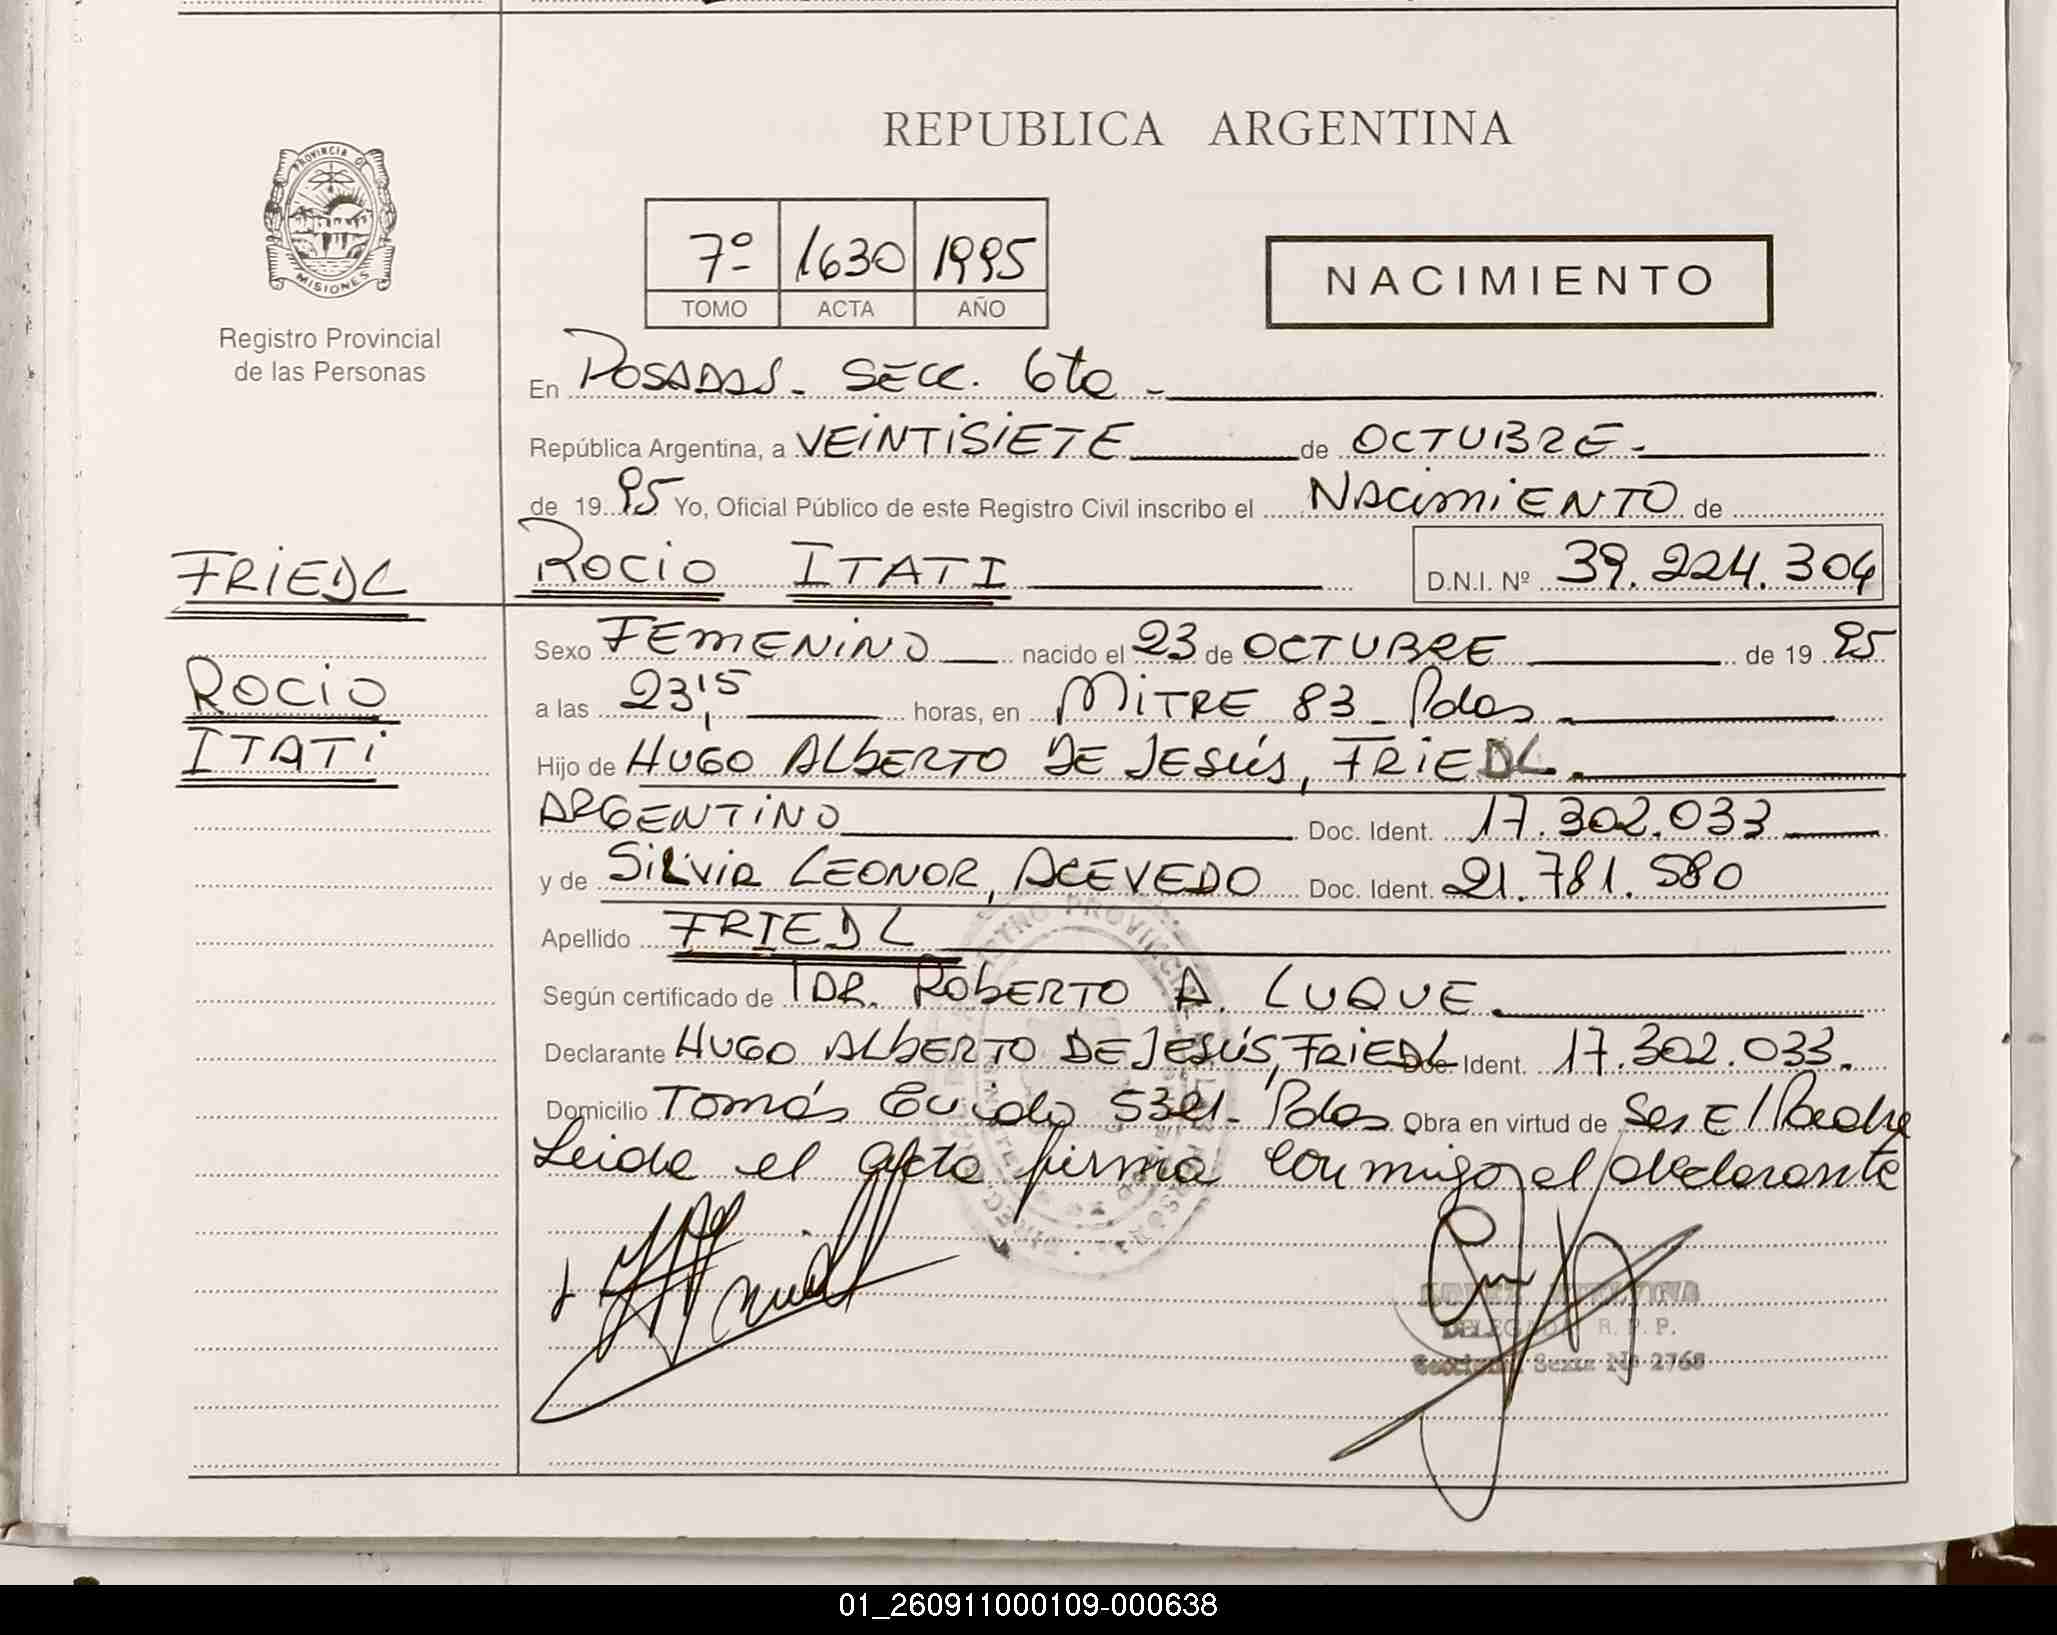 REPUBLICA ARGENTINA
PROVINCIA DE
MISIONES
Registro Provincial
de las Personas
7º 1630 1995
TOMO ACTA AÑO
NACIMIENTO
En POSADAS - SECC. 6ta -
República Argentina, a VEINTISIETE de OCTUBRE.-
de 1995 Yo, Oficial Público de este Registro Civil inscribo el NACIMIENTO de
FRIEDL
ROCIO ITATI D.N.I. Nº 39.224.304
ROCIO
ITATI
Sexo FEMENINO nacido el 23 de OCTUBRE de 1995
a las 23,15 horas, en MITRE 83 - Pdas
Hijo de HUGO ALBERTO DE JESÚS, FRIEDL.
ARGENTINO Doc. Ident. 17.302.033
y de SILVIA LEONOR, ACEVEDO Doc. Ident. 21.781.580
Apellido FRIEDL
Según certificado de DR. ROBERTO A. LUQUE.
Declarante HUGO ALBERTO DE JESÚS, FRIEDL Doc. Ident. 17.302.033.
Domicilio Tomás Guido 5321- Pdas Obra en virtud de Ser El Padre
Leida el acta firma conmigo el declarante
DELEGADA R. P. P.
Seccional Sexta Nº 2768
01_260911000109-000638